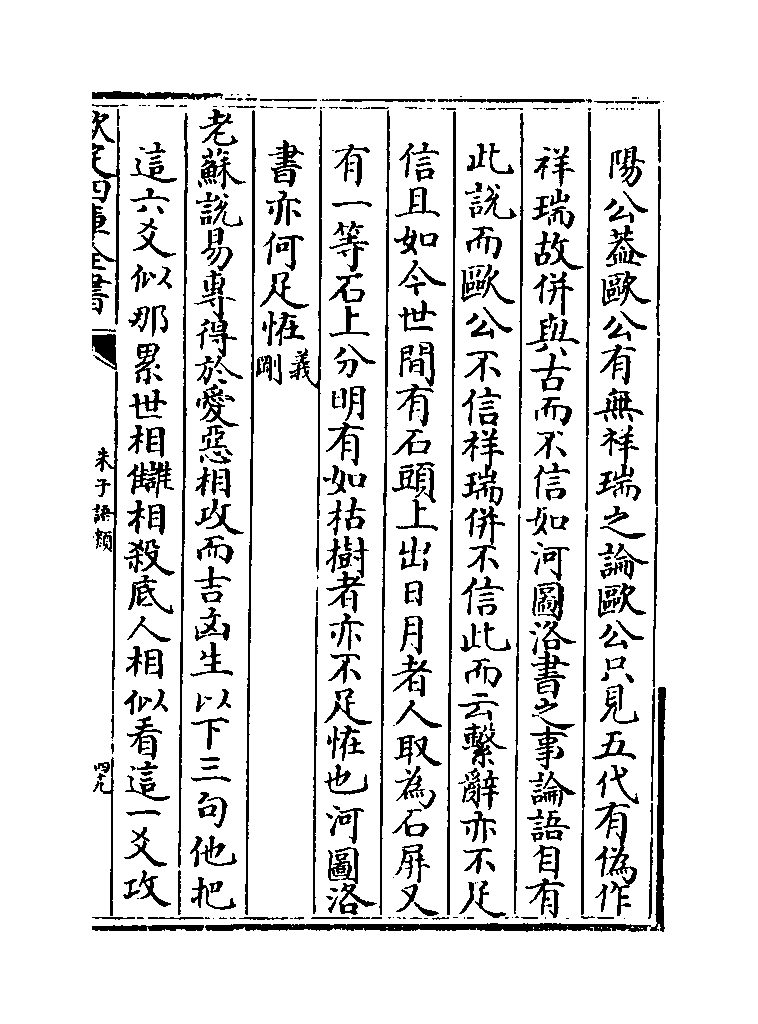 陽公葢歐公有無祥瑞之論歐公只見五代有偽作
祥瑞故併與古而不信如河圖洛書之事論語自有
此說而歐公不信祥瑞併不信此而云繫辭亦不足
信且如今世間有石頭上出日月者人取為石屏又
有一等石上分明有如枯樹者亦不足怪也河圖洛
書亦何足怪義剛
老蘇說易專得於愛惡相攻而吉凶生以下三句他把
這六爻似那累世相讎相殺底人相似看這一爻攻
欽定四庫全書
朱子語類